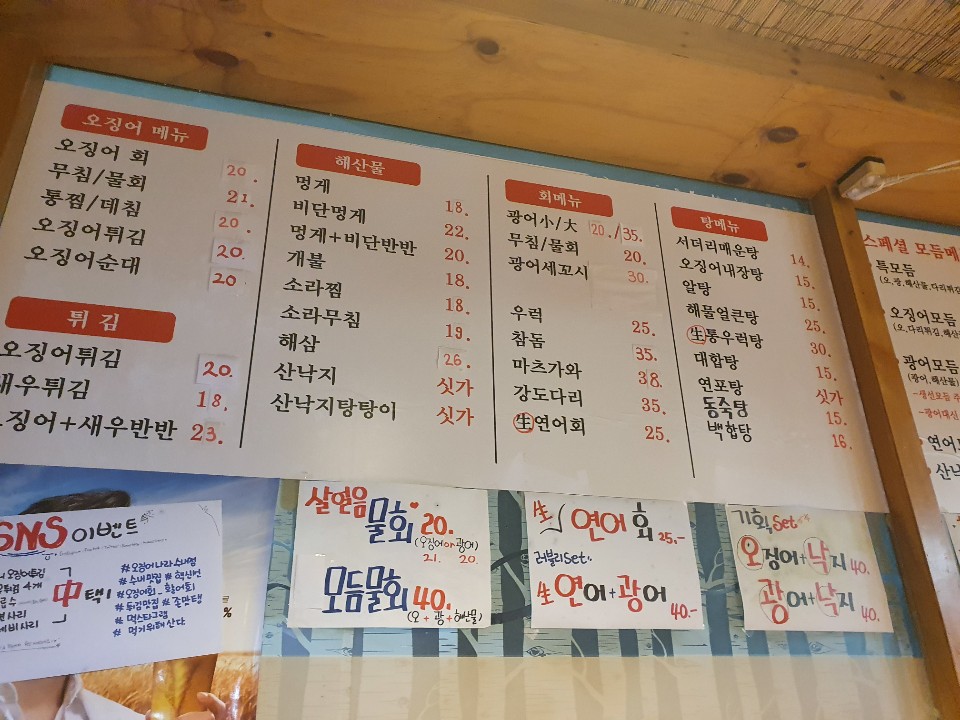 오징어 메뉴
오징어 회 20.
무침/물회 21.
통찜/데침 20.
오징어튀김 20.
오징어순대 20
튀김
오징어튀김 20.
새우튀김 18.
오징어+새우반반 23.
해산물
멍게 18.
비단멍게 22.
멍게+비단반반 20.
개불 18.
소라찜 18.
소라무침 19.
해삼 26.
산낙지 싯가
산낙지탕탕이 싯가
회메뉴
광어小/大 20./35.
무침/물회 20.
광어세꼬시 30.
우럭 25.
참돔 35.
마츠가와 38.
강도다리 35.
生연어회 25.
탕메뉴
서더리매운탕 14.
오징어내장탕 15.
알탕 15.
해물얼큰탕 25.
生통우럭탕 30.
대합탕 15.
연포탕 싯가
동죽탕 15.
백합탕 16.
스페셜 모듬메
특모듬
(오,광,해산물,다리튀김
오징어모듬
(오,다리튀김,해산
광어모듬
(광어,해산물)
-생선모듬 주
-광어대신
연어모
산낙
SNS 이벤트
오징어튀김
4개
사리
사리
中택1
#오징어나라수내점
#수내맛집 #혁신번
#오징어회_활광어회
#튀김맛집 #존맛탱
#먹스타그램
#먹기위해산다
%
살얼음 물회 20.
(오징어or광어)
21. 20.
모듬물회 40.
(오+광+해산물)
生 연어회 25.-
러블리Set
生 연어+광어 40.-
기획Set
오징어+낙지 40.
광어+낙지 40.